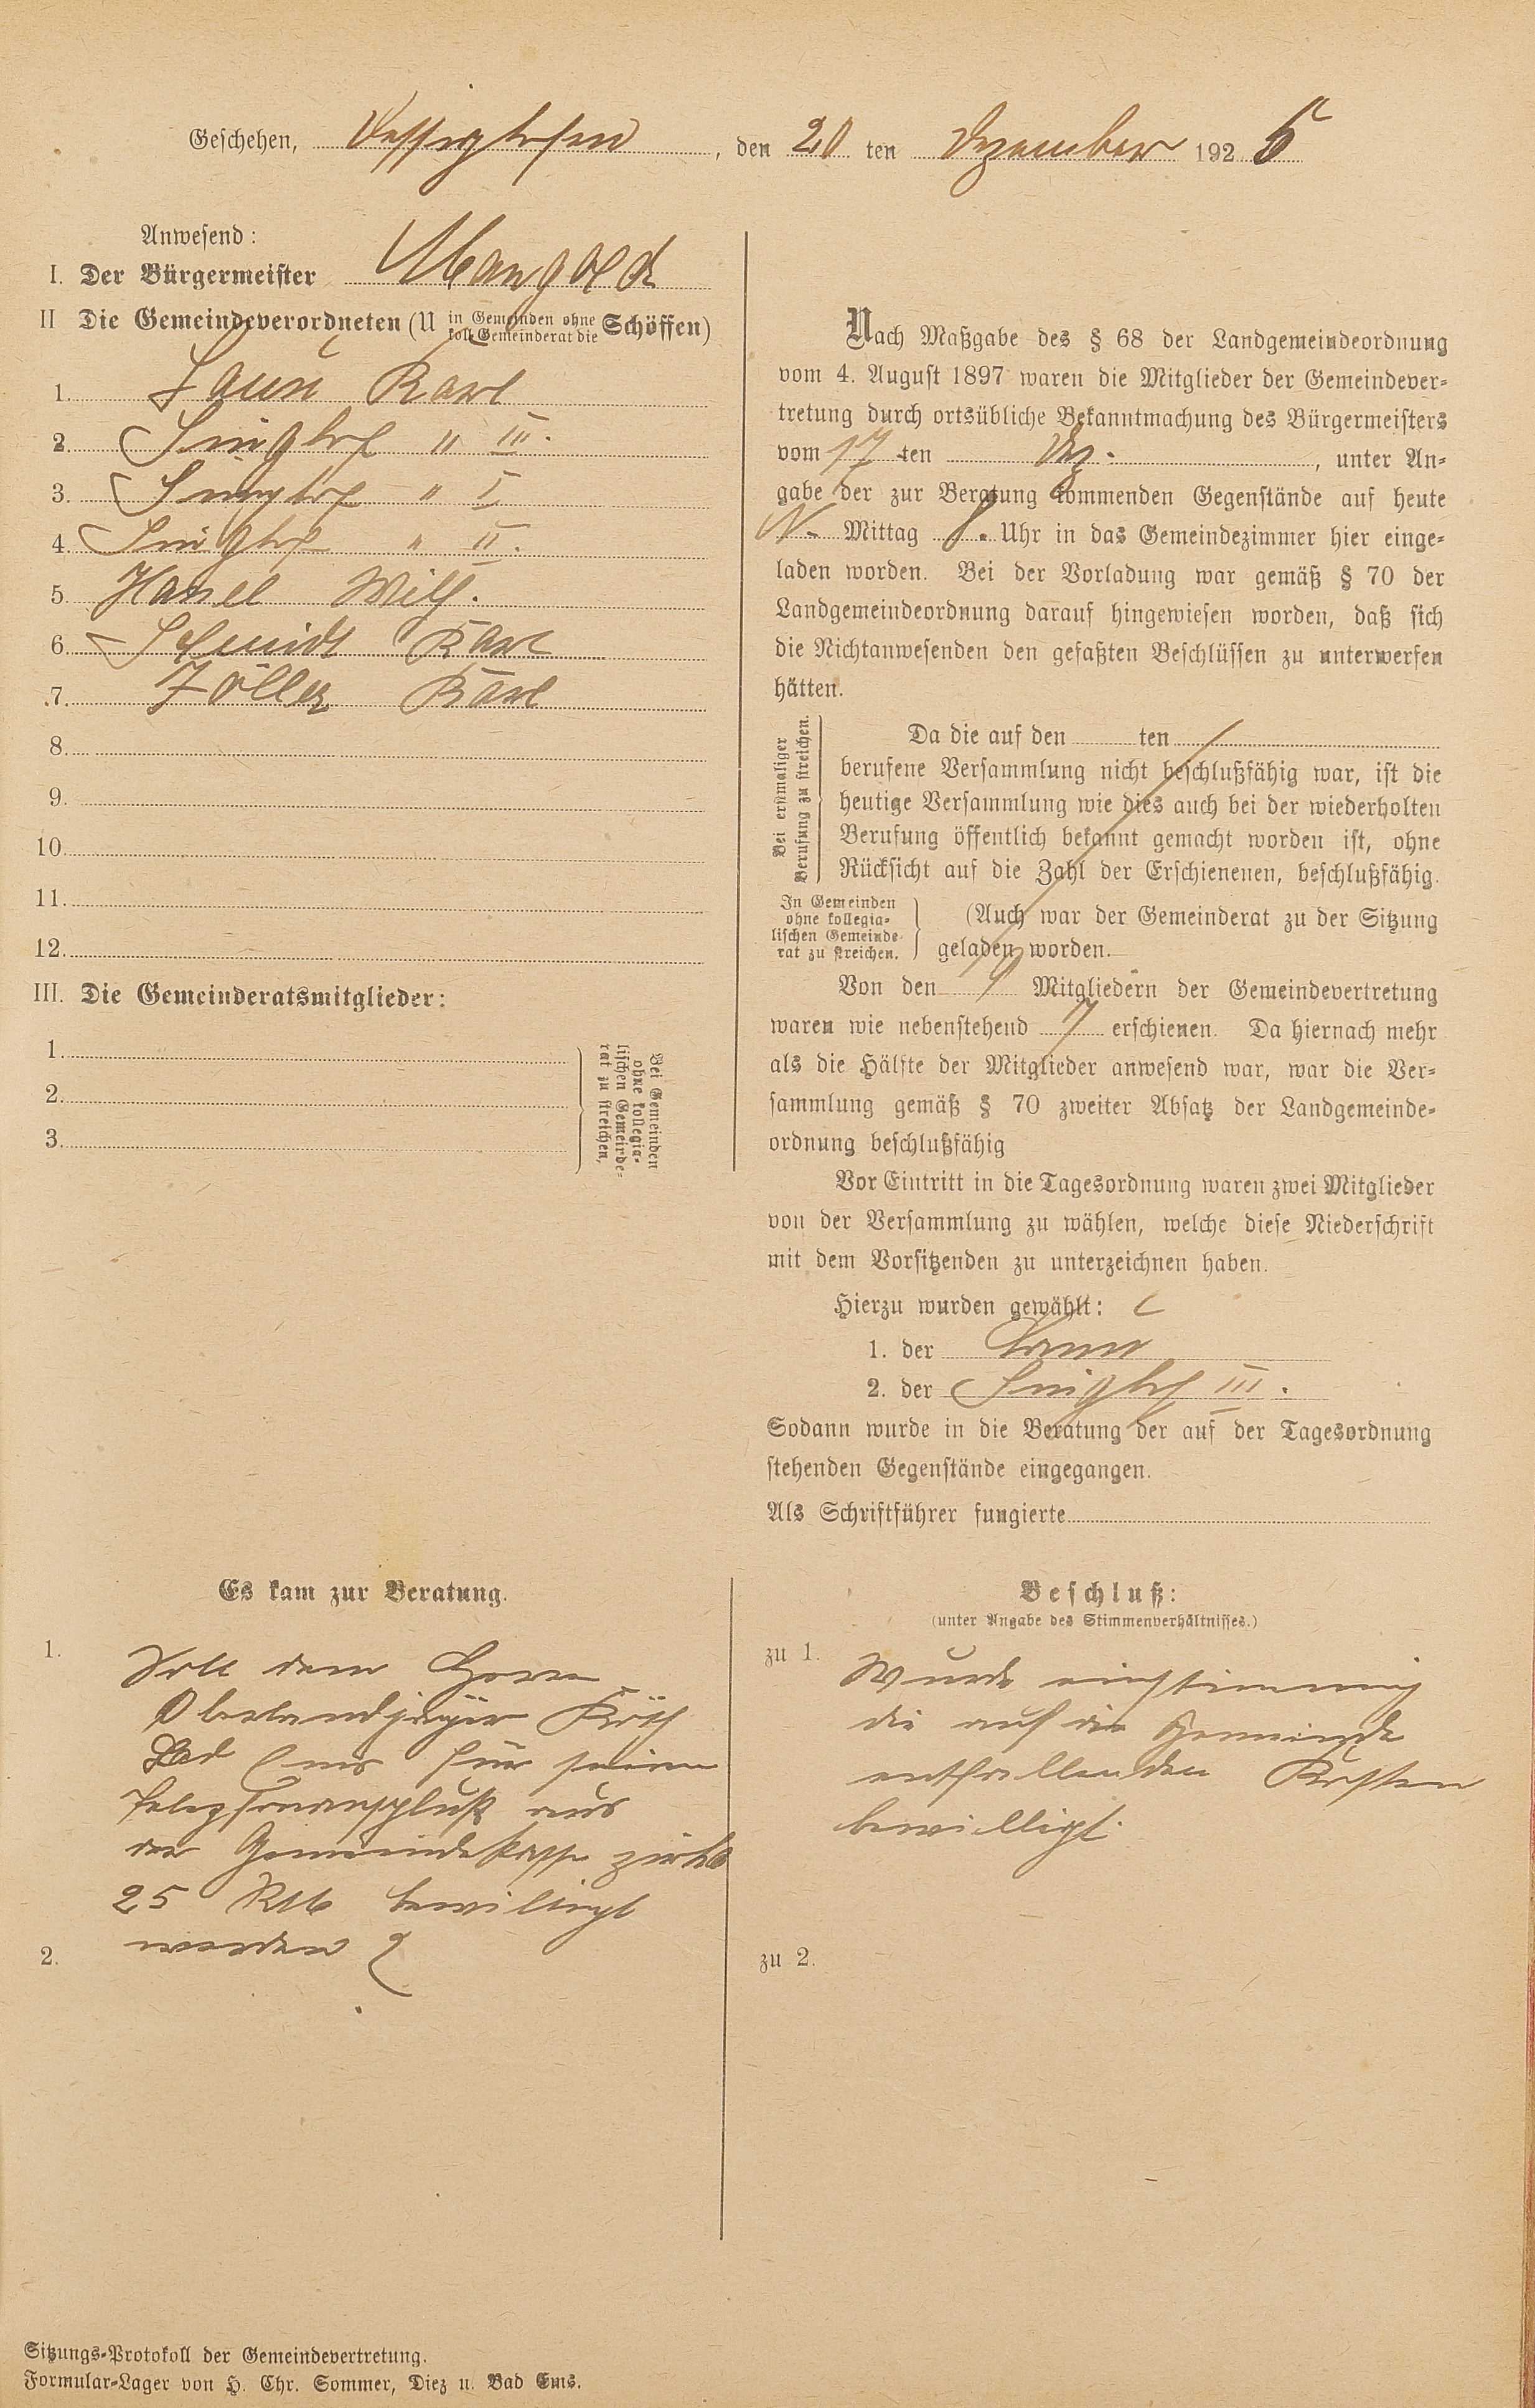 Geschehen, Dessighofen, den 20 ten Dezember 1925
Anwesend:
I. Der Bürgermeister Mangold
II Die Gemeindeverordneten (U in Gemeinden ohne koll. Gemeinderat die Schöffen)
1. Karl
2. Singhof " III.
3. Singhof " I
4. Singhof " II.
5. Wilh.
6. Schmidt Karl
7. Zöller Karl
8.
9.
10.
11.
12.
III. Die Gemeinderatsmitglieder:
1.
2.
3.
Bei Gemeinden
ohne kollegia-
lischen Gemeinde-
rat zu streichen,
Nach Maßgabe des § 68 der Landgemeindeordnung
vom 4. August 1897 waren die Mitglieder der Gemeindever-
tretung durch ortsübliche Bekanntmachung des Bürgermeisters
vom 17 ten Dez., unter An-
gabe der zur Beratung kommenden Gegenstände auf heute
N. Mittag 8. Uhr in das Gemeindezimmer hier einge-
laden worden. Bei der Vorladung war gemäß § 70 der
Landgemeindeordnung darauf hingewiesen worden, daß sich
die Nichtanwesenden den gefaßten Beschlüssen zu unterwerfen
hätten.
Bei erstmaliger
Berufung zu streichen.
Da die auf den ten
berufene Versammlung nicht beschlußfähig war, ist die
heutige Versammlung wie dies auch bei der wiederholten
Berufung öffentlich bekannt gemacht worden ist, ohne
Rücksicht auf die Zahl der Erschienenen, beschlußfähig.
In Gemeinden
ohne kollegia-
lischen Gemeinde
rat zu streichen.
(Auch war der Gemeinderat zu der Sitzung
geladen worden.
Von den Mitgliedern der Gemeindevertretung
waren wie nebenstehend 7 erschienen. Da hiernach mehr
als die Hälfte der Mitglieder anwesend war, war die Ver-
sammlung gemäß § 70 zweiter Absatz der Landgemeinde-
ordnung beschlußfähig
Vor Eintritt in die Tagesordnung waren zwei Mitglieder
von der Versammlung zu wählen, welche diese Niederschrift
mit dem Vorsitzenden zu unterzeichnen haben.
Hierzu wurden gewählt:
1. der
2. der Singhof III.
Sodann wurde in die Beratung der auf der Tagesordnung
stehenden Gegenstände eingegangen.
Als Schriftführer fungierte
Es kam zur Beratung.
1. Soll dem Herrn
Oberlandjäger Röth
Bad Ems für seinen
Telephonanschluß aus
der Gemeindekasse zirka
25 RM bewilligt
werden ?
2.
Beschluß:
(unter Angabe des Stimmenverhältnisses.)
zu 1. Wurde einstimmig
die auf die Gemeinde
entfallenden Kosten
bewilligt.
zu 2.
Sitzungs-Protokoll der Gemeindevertretung.
Formular-Lager von H. Chr. Sommer, Diez u. Bad Ems.